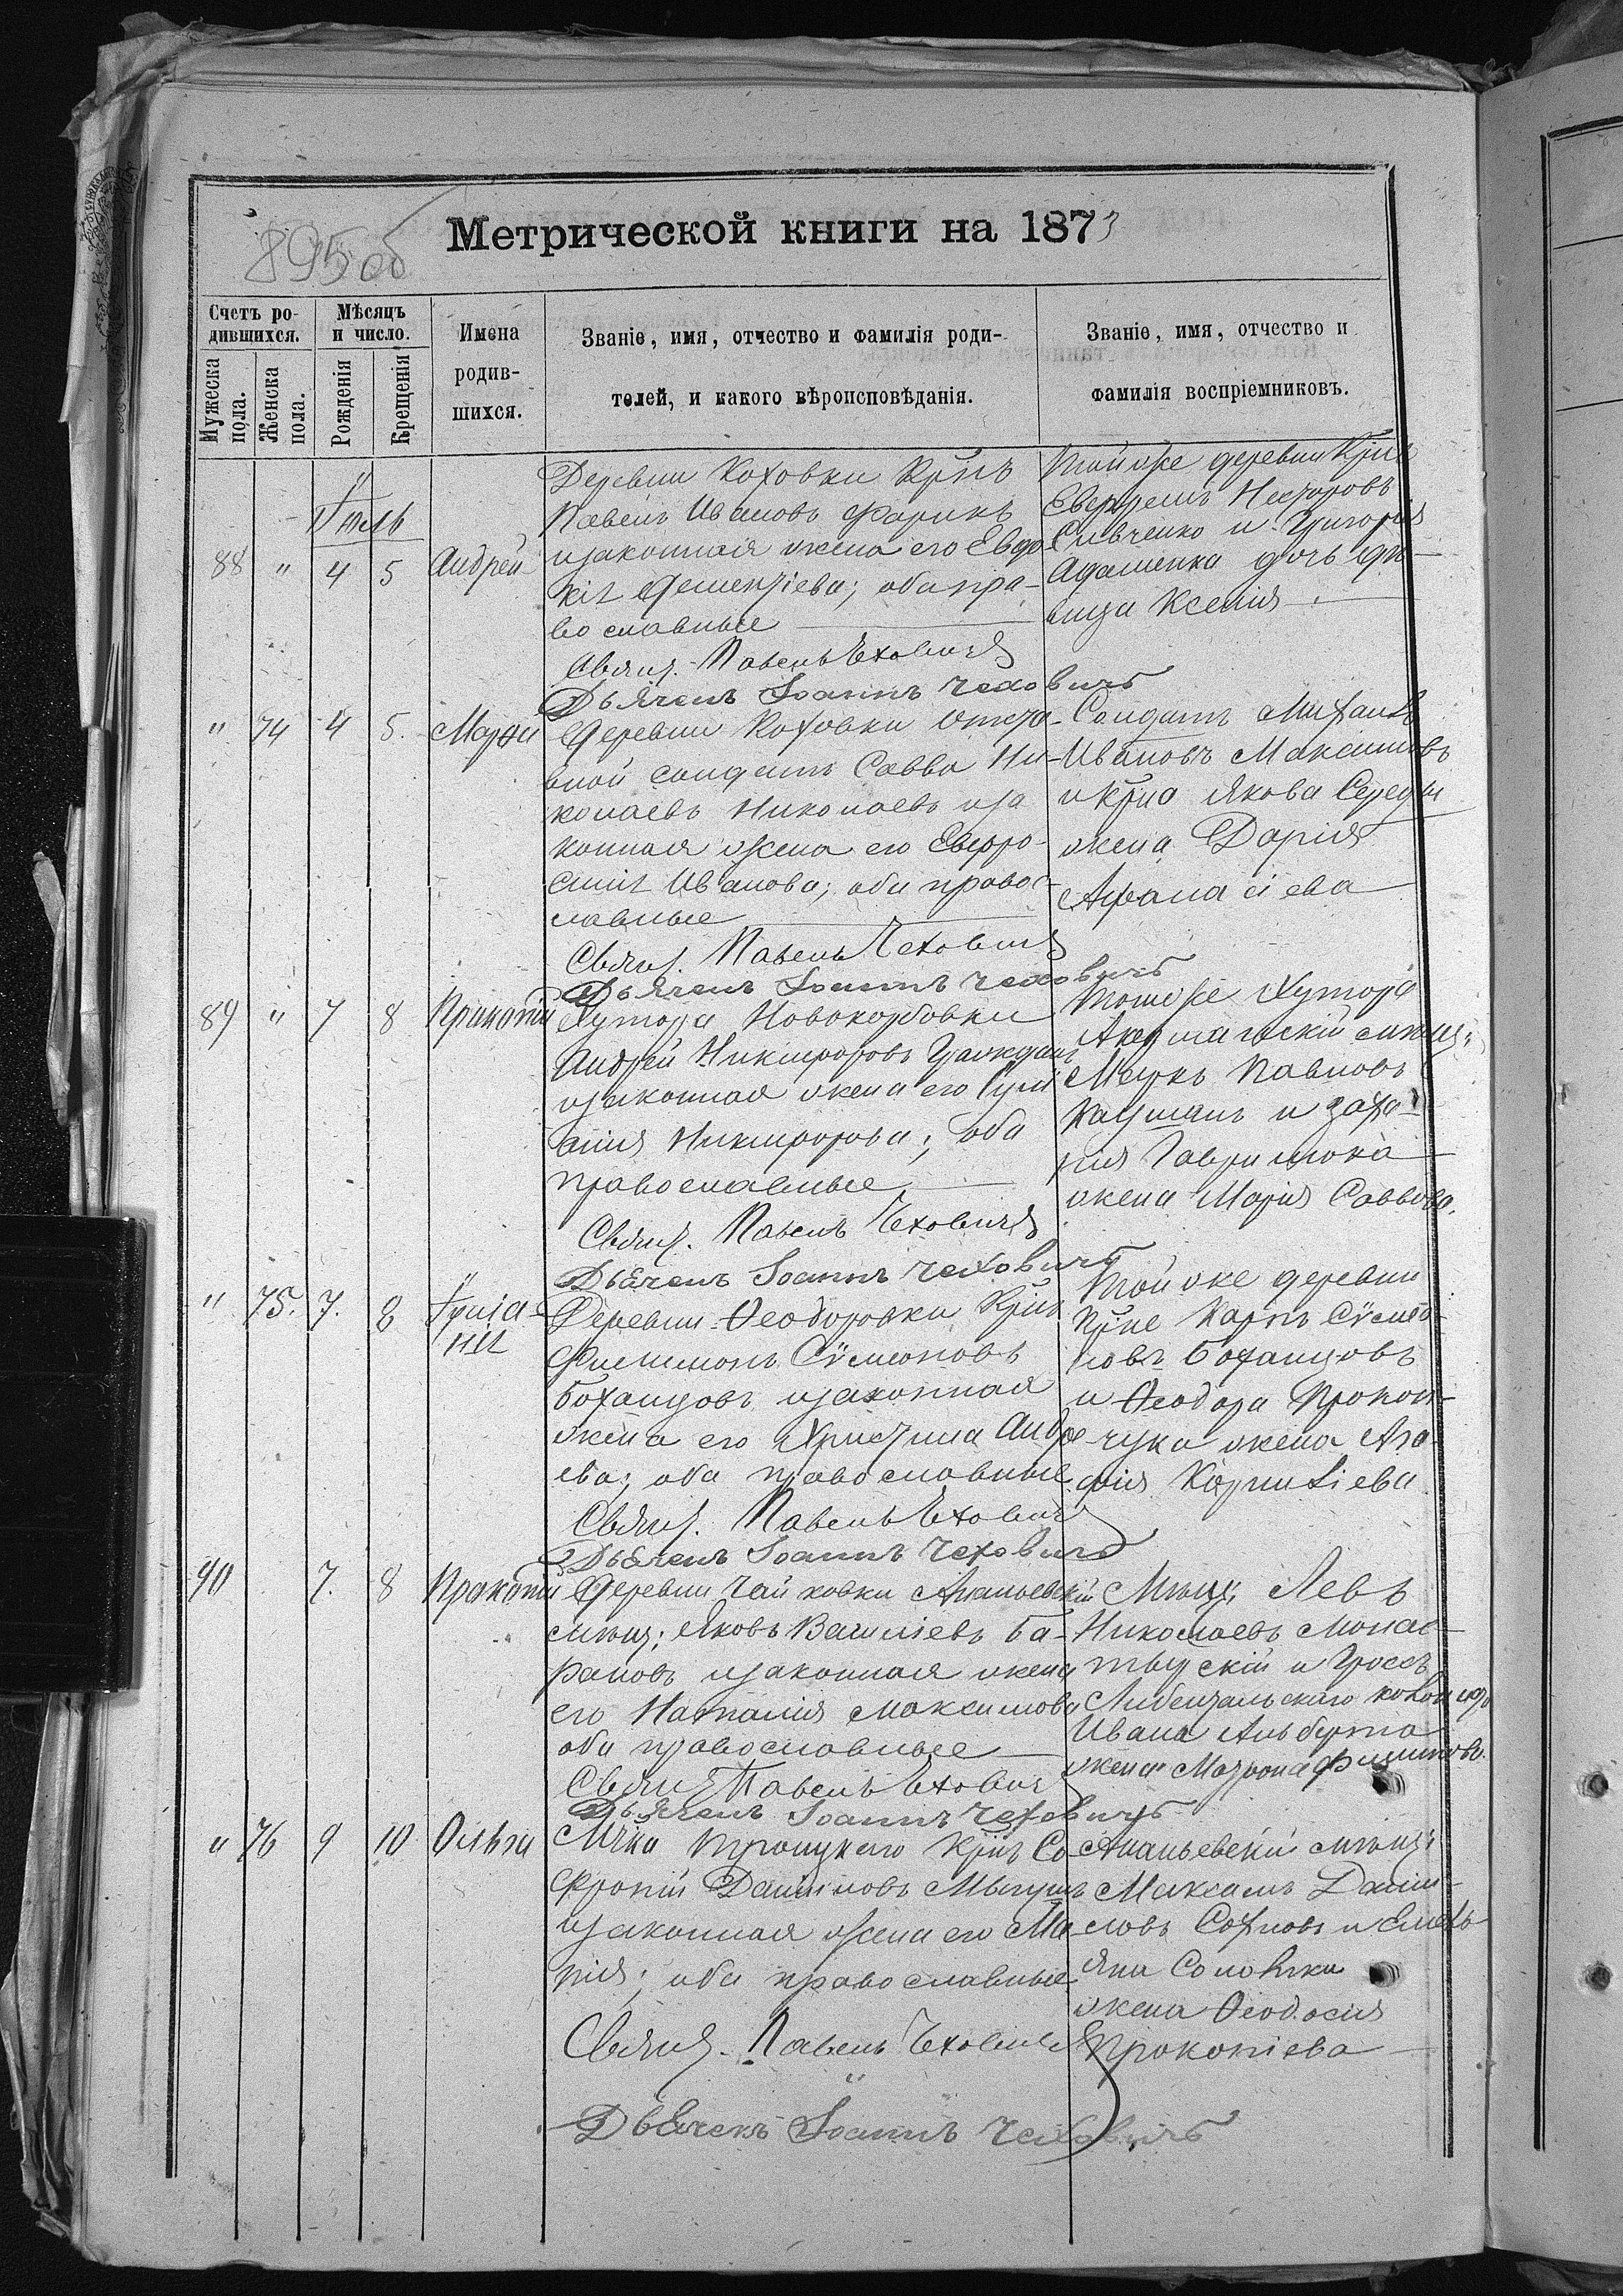 895об
Метрической книги на 1873
Счетъ ро-
дившихся.
Мужеска
пола.
Женска
пола.
Мѣсяцъ
и число.
Рожденія
Крещенія
Имена
родив-
шихся.
Званіе, имя, отчество и фамилія роди-
телей, и какого вѣроисповѣданія.
Званіе, имя, отчество и
фамилія воспріемниковъ.
Іюль
88 " 4 5 Андрей
Деревни Коховки Крнъ
Павелъ Ивановъ Фарикъ
изаконная жена его Евдо-
кія Дементіева; оба пра-
вославные
Свящ. Павелъ Чеховичъ
Дьячекъ Іоаннъ Чеховичъ
Тойже деревни Крнъ
Несторовъ
Сивченко и Григорія
Адаменка дочь дѣ-
вица Ксенія
" 74 4 5. Марѳа
Деревни Коховки отста-
вной солдатъ Савва Ни-
колаевъ Николаевъ иза
конная жена его Евфро-
синія Иванова; оба правос-
лавные
Свящ. Павелъ Чеховичъ
Дьячекъ Іоаннъ Чеховичъ
Солдатъ Михаилъ
Ивановъ Максимовъ
и Крна Якова Середы
жена Дарія
Афанасіева
89 " 7 8 Прокопій
Хутора Новокорбовки
Андрей Никифоровъ Гражданъ
изаконная жена его
Никифорова; оба
православные
Свящ. Павелъ Чеховичъ
Дьячекъ Іоаннъ Чеховичъ
Тогоже Хутора
мѣщ:
Маркъ Павловъ
и Заха-
рія Гаврилюка
жена Марія Саввова.
" 75. 7. 8
Деревни Ѳеодоровки Крнъ
Филимонъ Сѵмеоновъ
Боханцовъ изаконная
жена его Христина Андре-
ева; оба православные
Свящ. Павелъ Чеховичъ
Дьячекъ Іоаннъ Чеховичъ
Той же деревни
Крне Карпъ Сѵмео-
новъ Боханцовъ
и Ѳеодора Прокоп-
чука жена Ага-
фія Корниліева
90 7. 8 Прокопій
Деревни Чайковки Ананьевскій
мѣщ: Яковъ Василіевъ Ба-
рановъ изаконная жена
его Наталія Максимова
оба православные
Свящ. Павелъ Чеховичъ
Дьячекъ Іоаннъ Чеховичъ
Мѣщ: Левъ
Николаевъ Монас-
тырскій и Гросъ
Либентальскаго колониста
Ивана Альберта
жена Матрона Филипова.
" 76 9 10 Ольга
Мчка Троицкаго Крнъ Со-
фроній Даниловъ
изаконная жена его Ма-
рія; оба православные
Свящ. Павелъ Чеховичъ
Дьячекъ Іоаннъ Чеховичъ
Ананьевскій мѣщ:
Максимъ Дани-
ловъ и Емель
яна Соловки
жена Ѳеодосія
Прокопіева